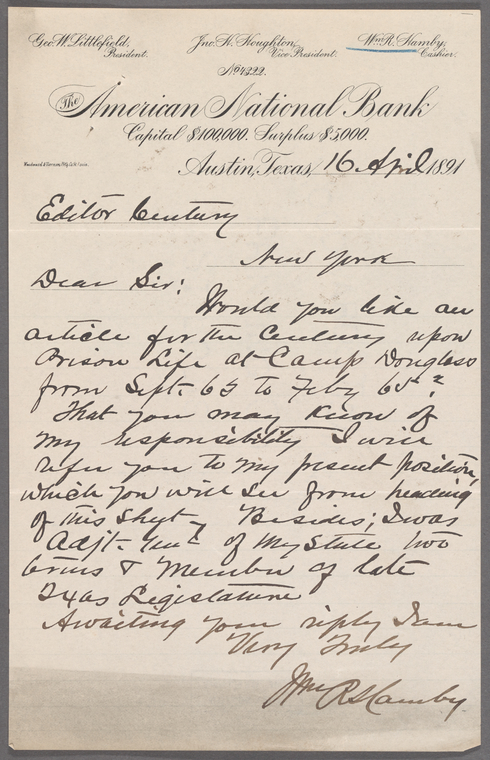 Geo. W. Littlefield, Jno. H. Houghton, Wm R. Hamby,
President. Vice President. Cashier.
No 4322.
The American National Bank
Capital $100,000. Surplus $5,000.
Austin, Texas, 16 April 1891
Editor Century
New York
Dear Sir:
Would you like an
article for the Century upon
Prison Life at Camp Douglass
from Sept. 63 to Feby 65?
That you may know of
my responsibility I will
refer you to my present position,
which you will see from heading
of this sheet - Besides; I was
Adjt. Genl of my State two
terms & Member of late
Texas Legislature
Awaiting your reply I am
Very Truly
Wm R Hamby.